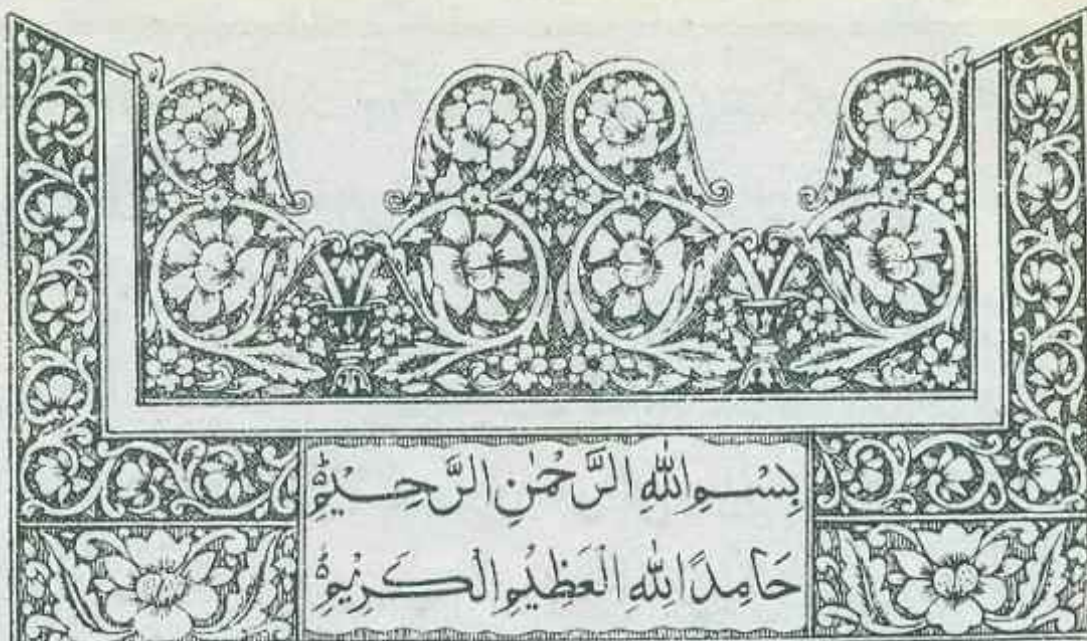 بِسْمِ اللّٰهِ الرَّحْمٰنِ الرَّحِيْمِ
حَامِدًا لِلّٰهِ الْعَظِيْمِ الْكَرِيْمِ